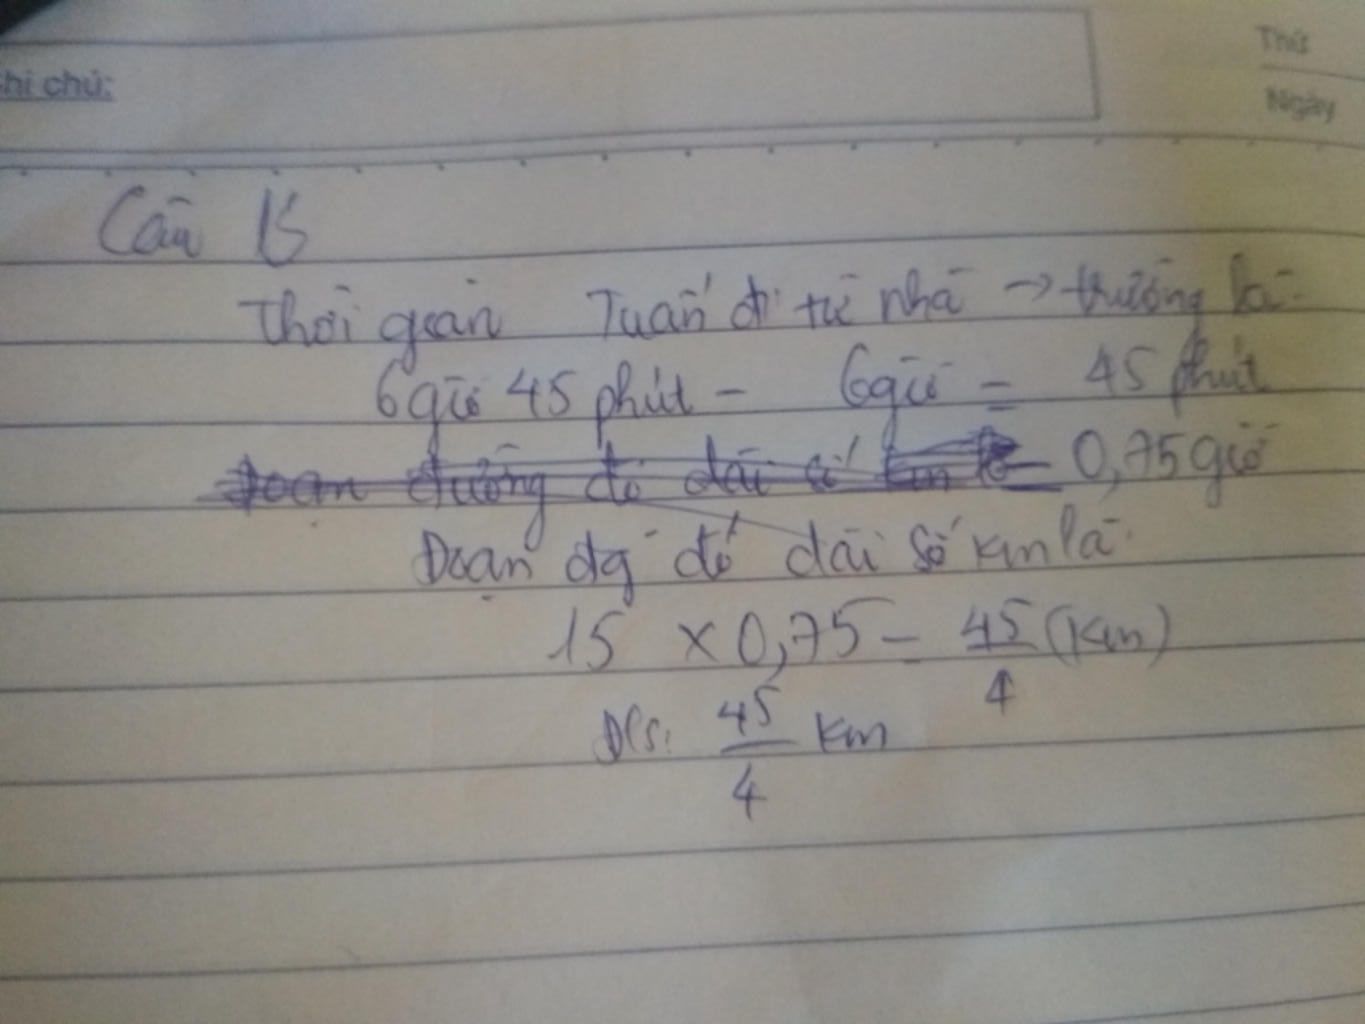 hi chú:
Thứ
Ngày
Câu 15
Thời gian Tuấn đi từ nhà → trường là
6 giờ 45 phút - 6 giờ = 45 phút
= 0,75 giờ
Đoạn đg đó dài số km là
15 x 0,75 = 45/4 (km)
Đ/s: 45/4 km